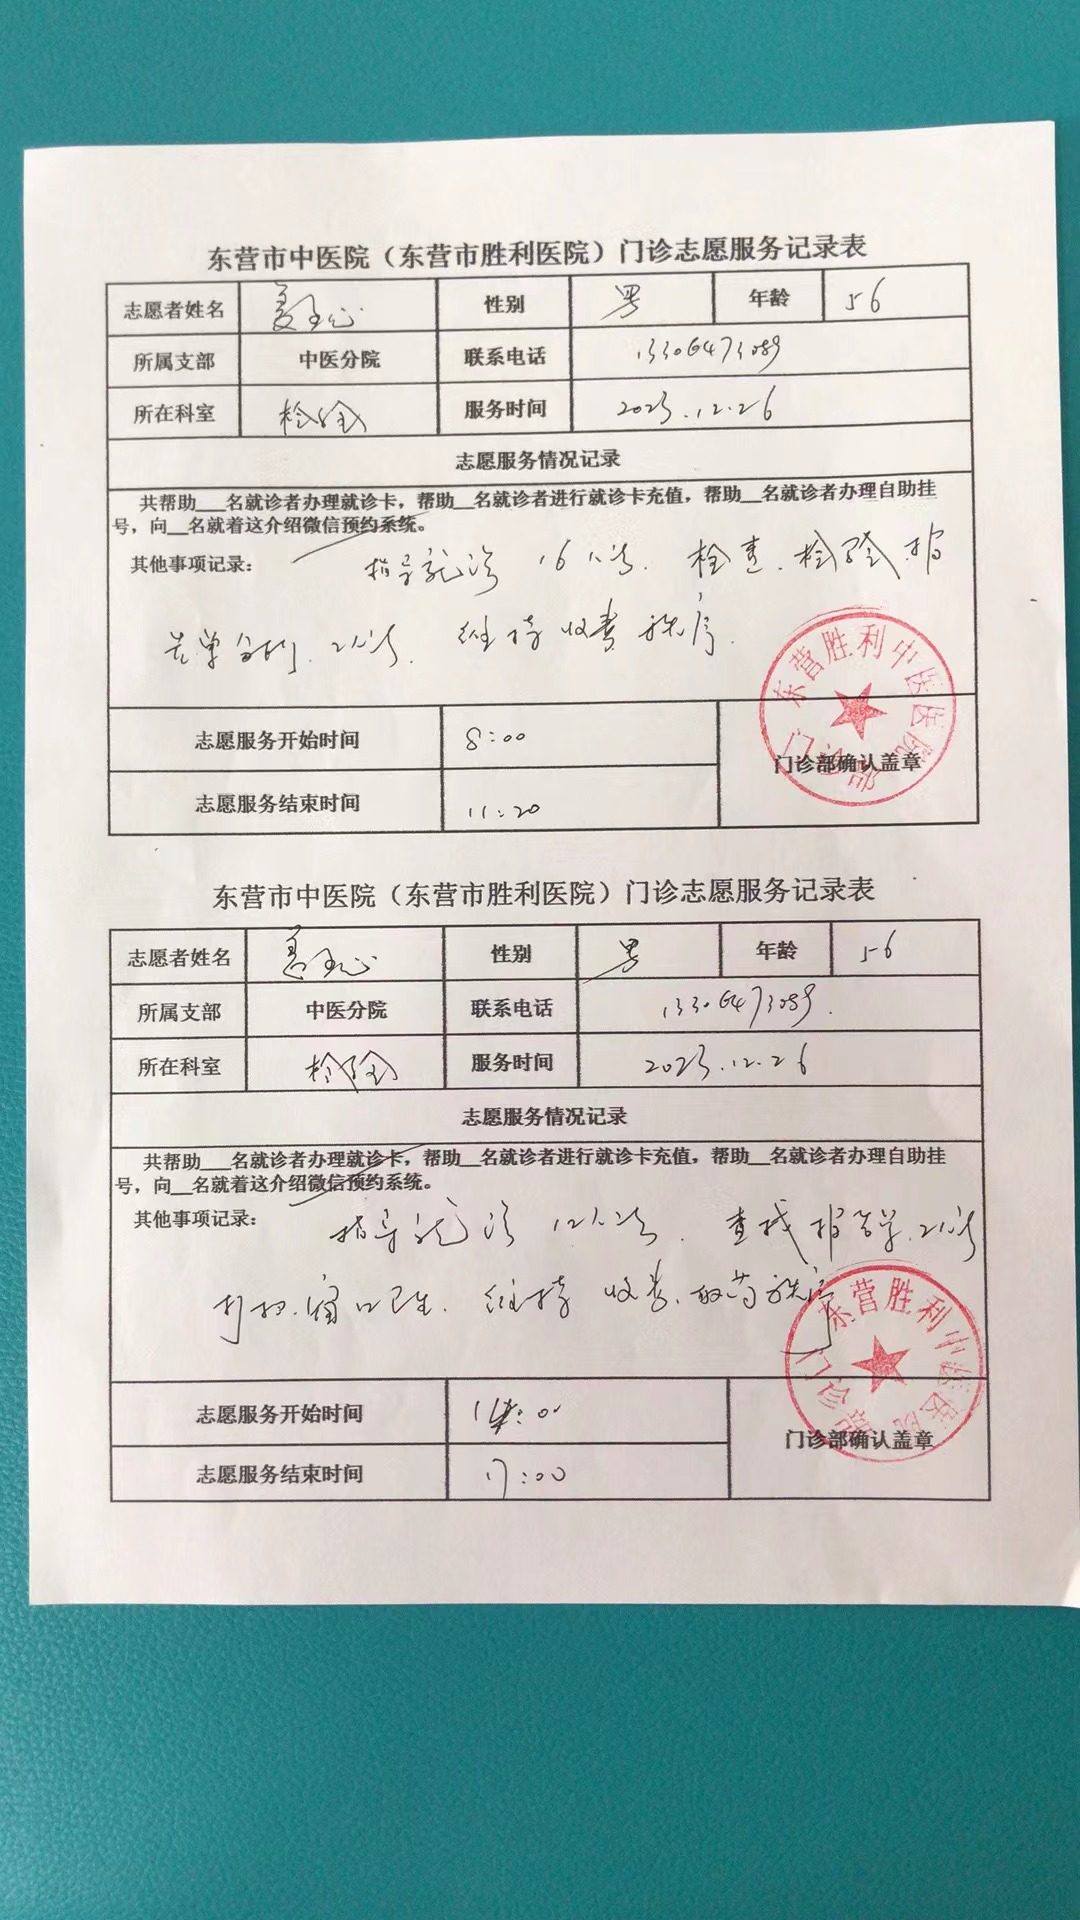 东营市中医院（东营市胜利医院）门诊志愿服务记录表
志愿者姓名 性别 男 年龄 56
所属支部 中医分院 联系电话 13306473089
所在科室 检验 服务时间 2023.12.26
志愿服务情况记录
共帮助___名就诊者办理就诊卡，帮助__名就诊者进行就诊卡充值，帮助__名就诊者办理自助挂
号，向__名就着这介绍微信预约系统。
其他事项记录： 指导就诊 16人次. 检查.检验.报
告单 2人次. 维持收费秩序.
东营胜利中医医院
门诊部
志愿服务开始时间 8:00
门诊部确认盖章
志愿服务结束时间 11:20
东营市中医院（东营市胜利医院）门诊志愿服务记录表
志愿者姓名 性别 男 年龄 56
所属支部 中医分院 联系电话 13306473089.
所在科室 检验 服务时间 2023.12.26
志愿服务情况记录
共帮助___名就诊者办理就诊卡，帮助__名就诊者进行就诊卡充值，帮助__名就诊者办理自助挂
号，向__名就着这介绍微信预约系统。
其他事项记录： 指导就诊 12人次. 查找报告单.2人次
打扫.窗口卫生. 维持收费.取药秩序
东营胜利中医医院
门诊部
志愿服务开始时间 14:00
门诊部确认盖章
志愿服务结束时间 17:00